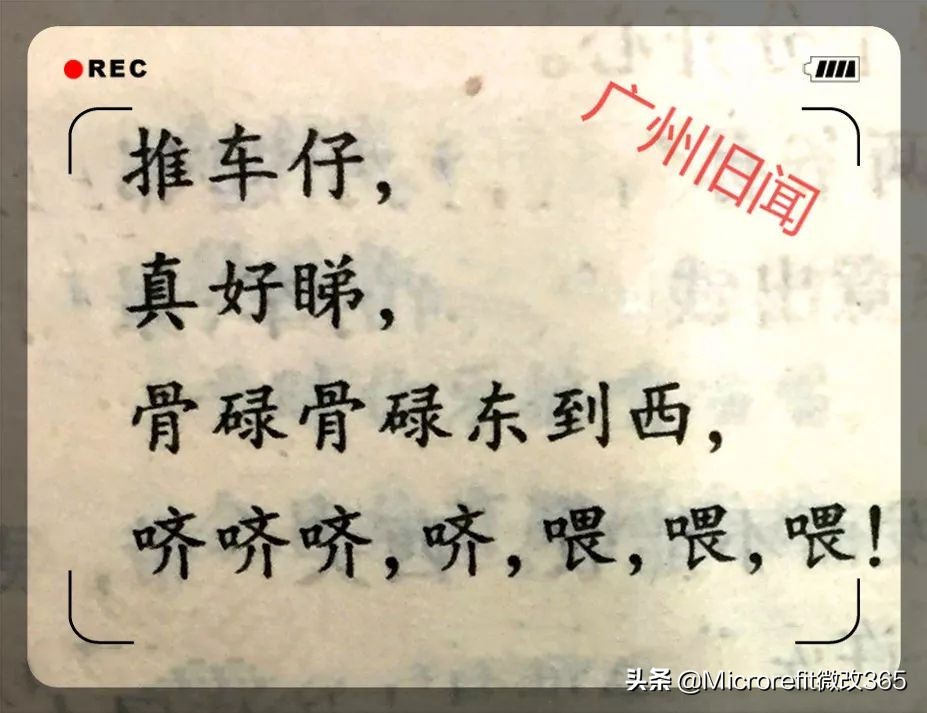 REC
广州旧闻
推车仔，
真好睇，
骨碌骨碌东到西，
哜哜哜，哜，喂，喂，喂！
头条 @Microrefit微改365